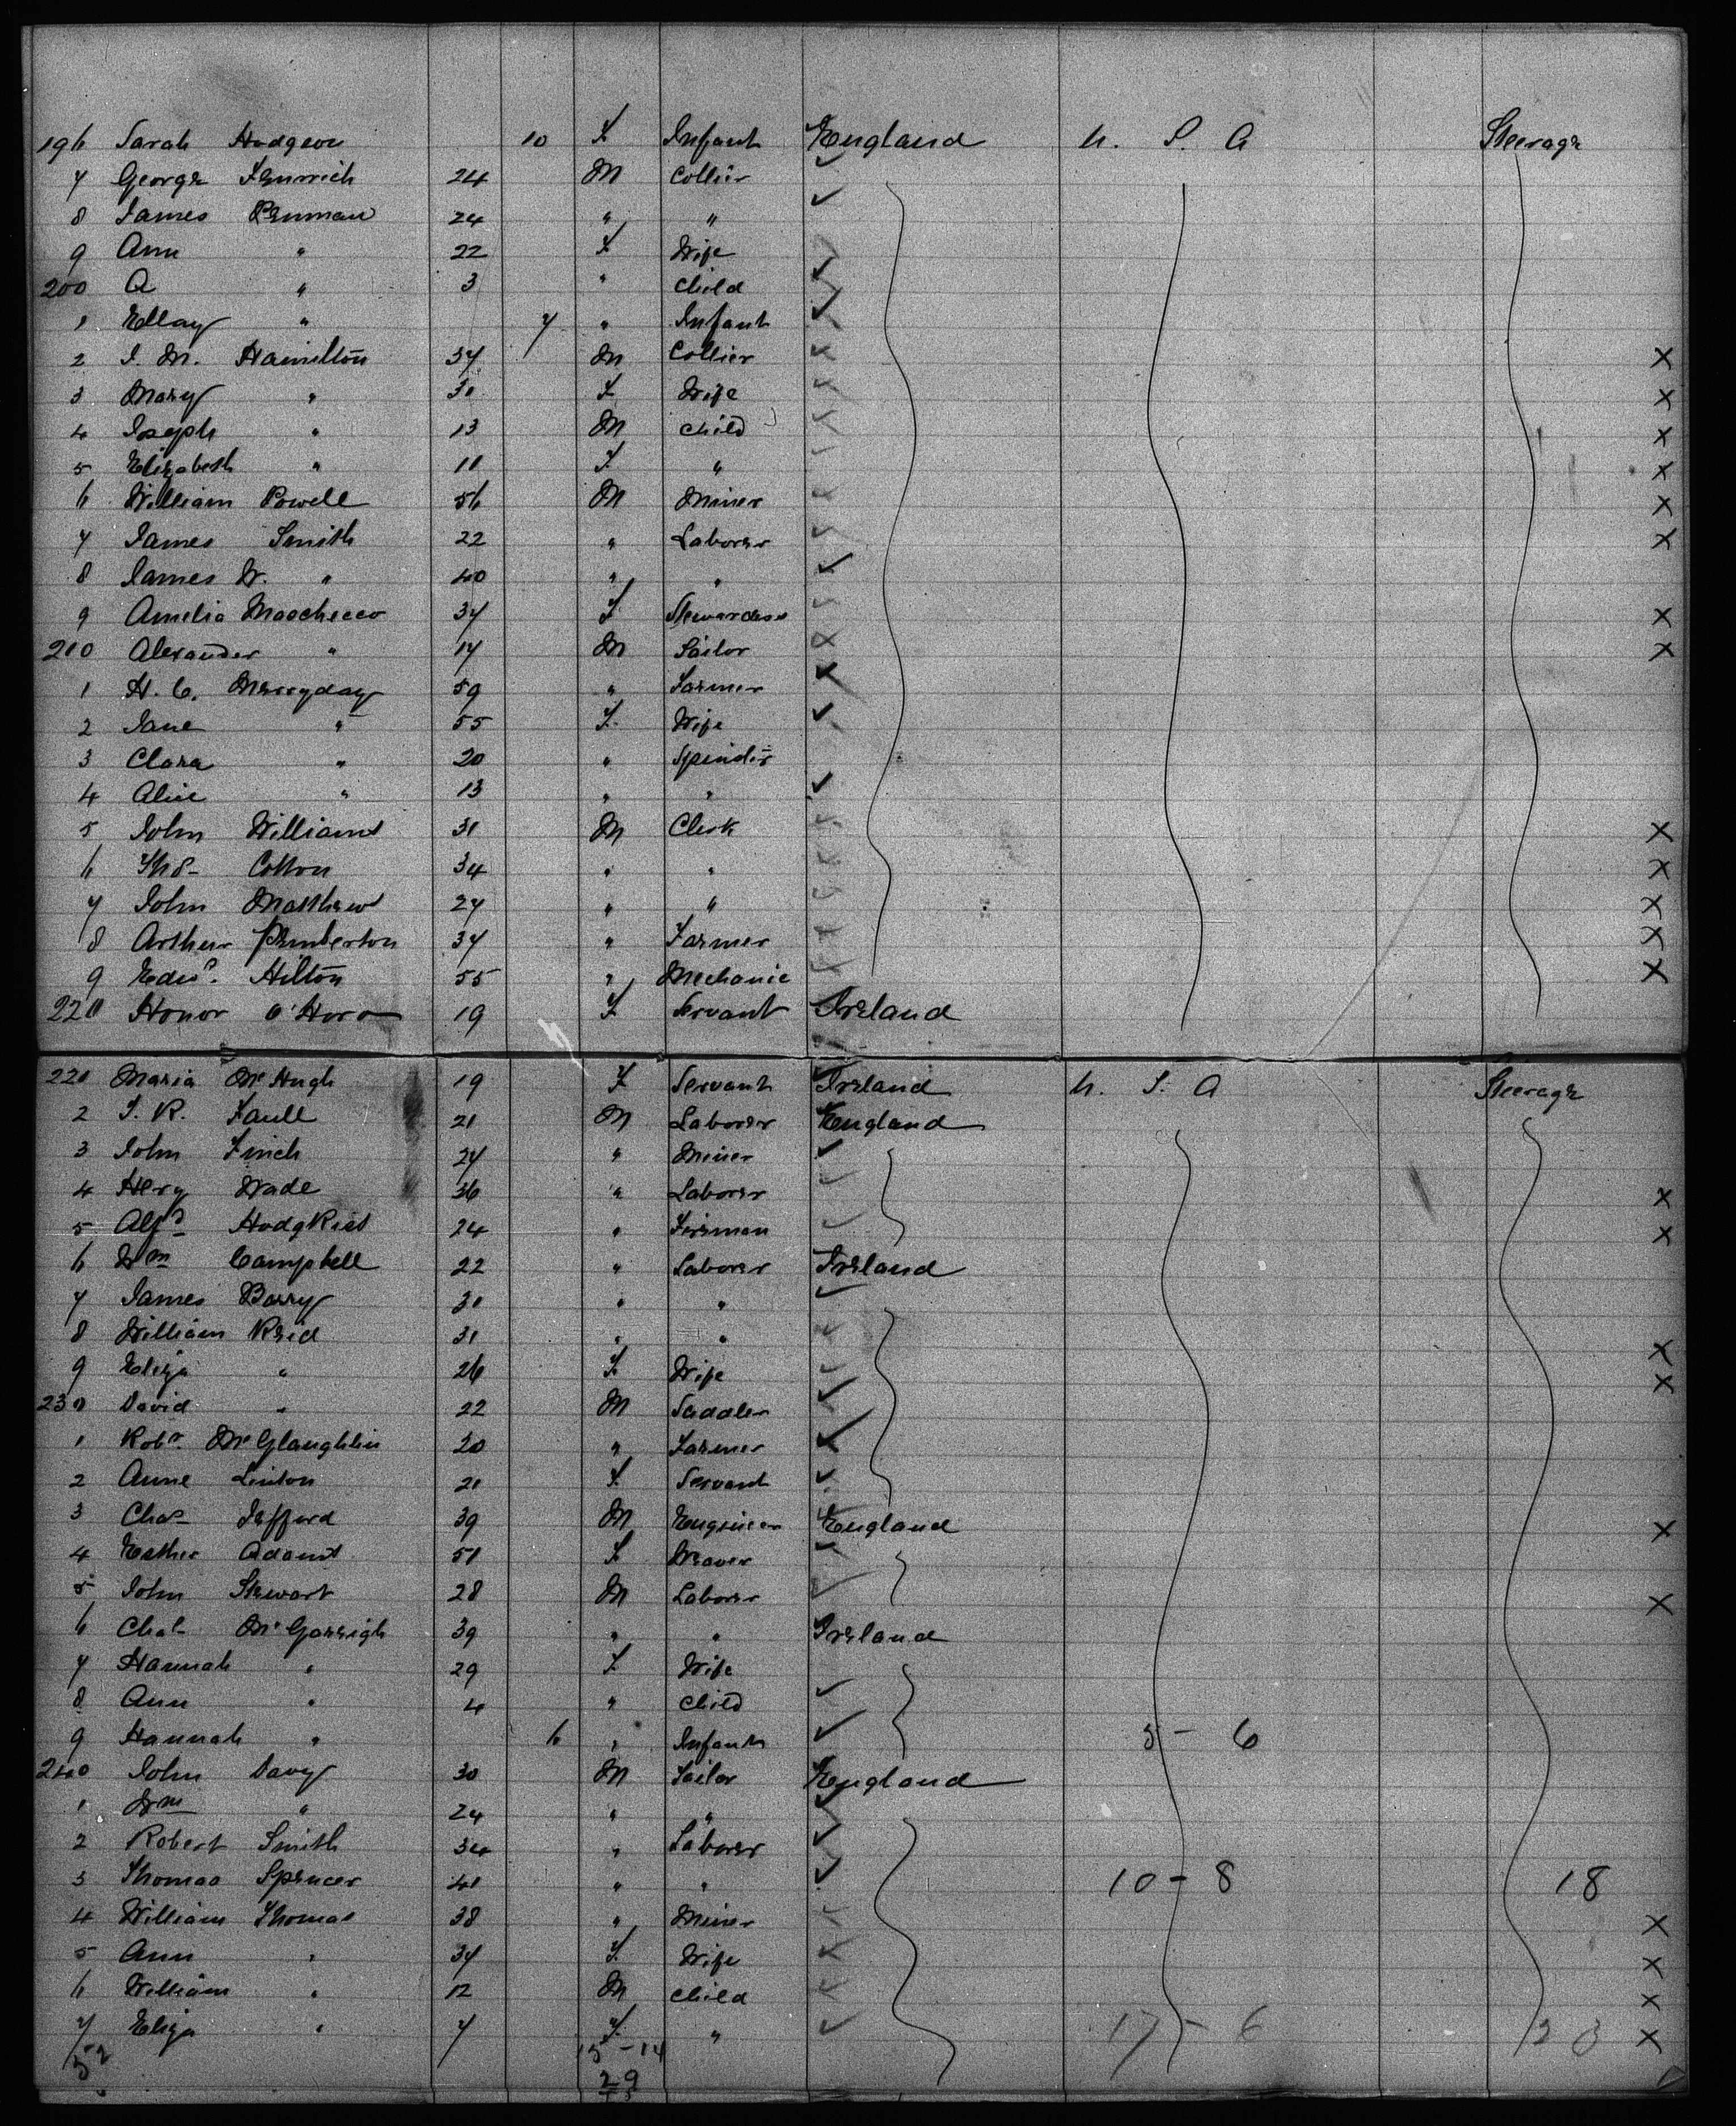 196 Sarah Hodgson 10 F Infant England U. S. A Steerage
7 George Fenwick 24 M Collier
8 James Penman 24 " "
9 Ann " 22 F Wife
200 A " 3 " Child
1 Ellay " 7 " Infant
2 J. M. Hamilton 37 M Collier X
3 Mary " 30 F Wife X
4 Joseph " 13 M Child X
5 Elizabeth " 11 F " X
6 William Powell 56 M Miner X
7 James Smith 22 " Laborer X
8 James W. " 40 " "
9 Amelia 37 F Stewardess X
210 Alexander " 17 M Sailor X
1 H. C. Merryday 59 " Farmer
2 Jane " 55 F Wife
3 Clara " 20 " Spinstr
4 Alice " 13 " "
5 John Williams 31 M Clerk X
6 Thos Cotton 34 " " X
7 John Matthews 27 " " X
8 Arthur Pemberton 37 " Farmer X
9 Edwd. Hilton 55 " Mechanic X
220 Honor O'Hora 19 F Servant Ireland
221 Maria McHugh 19 F Servant Ireland U. S. A Steerage
2 Faull 21 M Laborer England
3 John Finch 27 " Miner
4 Hery Wade 36 " Laborer X
5 Alfd Hodgkiss 24 " Fireman X
6 Wm Campbell 22 " Laborer Ireland
7 James Barry 30 " "
8 William Reid 31 " " X
9 Eliza " 26 F Wife X
230 David " 22 M Saddler
1 Robt. McGlaughlin 20 " Farmer
2 Anne Linton 21 F Servant
3 Chas Jefford 39 M Engineer England X
4 Esther Adams 51 F Weaver
5 John Stewart 28 M Laborer X
6 Chas McGarrigh 39 " " Ireland
7 Hannah " 29 F Wife
8 Ann " 4 " Child
9 Hannah " 6 " Infant 5 - 6
240 John Davy 30 M Sailor England
1 Wm " 24 " "
2 Robert Smith 34 " Laborer
3 Thomas Spencer 41 " " 10 - 8 18
4 William Thomas 38 " Miner X
5 Ann " 37 F Wife X
6 William " 12 M Child X
7 Eliza " 7 F " 17 - 6 23 X
52 15 - 14
29